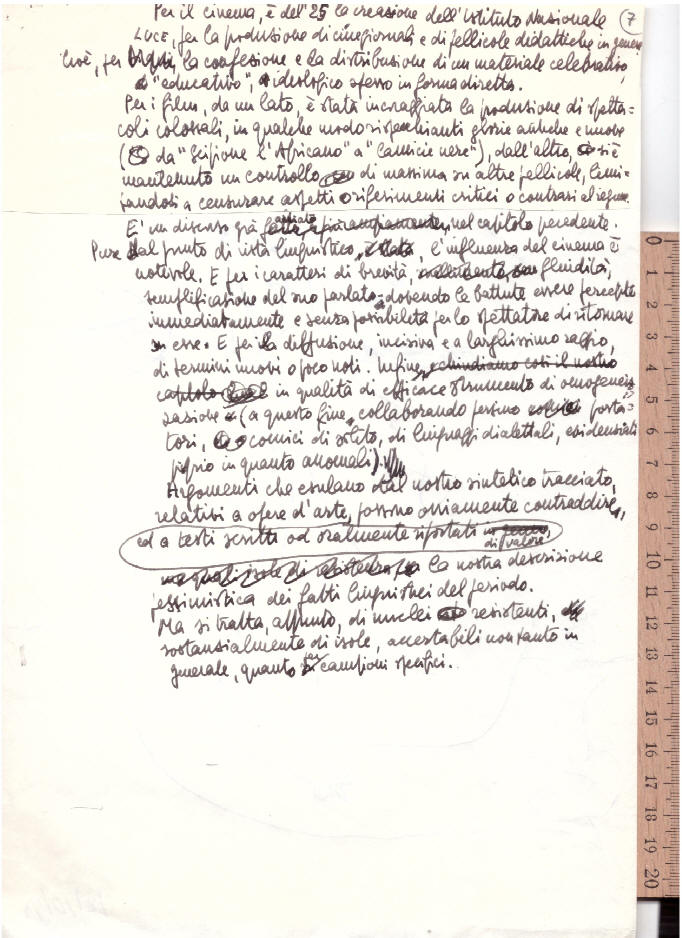 7
Per il cinema, è del '25 la creazione dell'Istituto Nazionale
LUCE, per la produzione di cinegiornali e di pellicole didattiche in genere
Cioè, per la confezione e la distribuzione di un materiale celebrativo,
"educativo", ideologico spesso in forma diretta.
Per i film, da un lato, è stata incoraggiata la produzione di spetta=
coli colossali, in qualche modo rispecchianti glorie antiche e nuove
(da "Scipione l'Africano" a "Camicie nere"), dall'altro, si è
mantenuto un controllo di massima su altre pellicole, limi=
tandosi a censurare aspetti o riferimenti critici o contrari al regime.
E' un discorso già avviato nel capitolo precedente.
Pure dal punto di vista linguistico, l'influenza del cinema è
notevole. E per i caratteri di brevità, fluidità,
semplificazione del suo parlato: dovendo le battute essere percepite
immediatamente e senza possibilità per lo spettatore di ritornare
su esse. E per la diffusione, incisiva e a larghissimo raggio,
di termini nuovi o poco noti. Infine, e chiudiamo così il nostro
capitolo in qualità di efficace strumento di omogeneiz=
zazione (a questo fine, collaborando persino porta=
tori, comici di solito, di linguaggi dialettali, evidenziati
proprio in quanto anomali).
Argomenti che esulano dal nostro sintetico tracciato,
relativi a opere d'arte, possono ovviamente contraddire,
ed a testi scritti od oralmente riportati di valore,
la nostra descrizione
pessimistica dei fatti linguistici del periodo.
Ma si tratta, appunto, di nuclei resistenti,
sostanzialmente di isole, accertabili non tanto in
generale, quanto per campioni specifici.
0
1
2
3
4
5
6
7
8
9
10
11
12
13
14
15
16
17
18
19
20